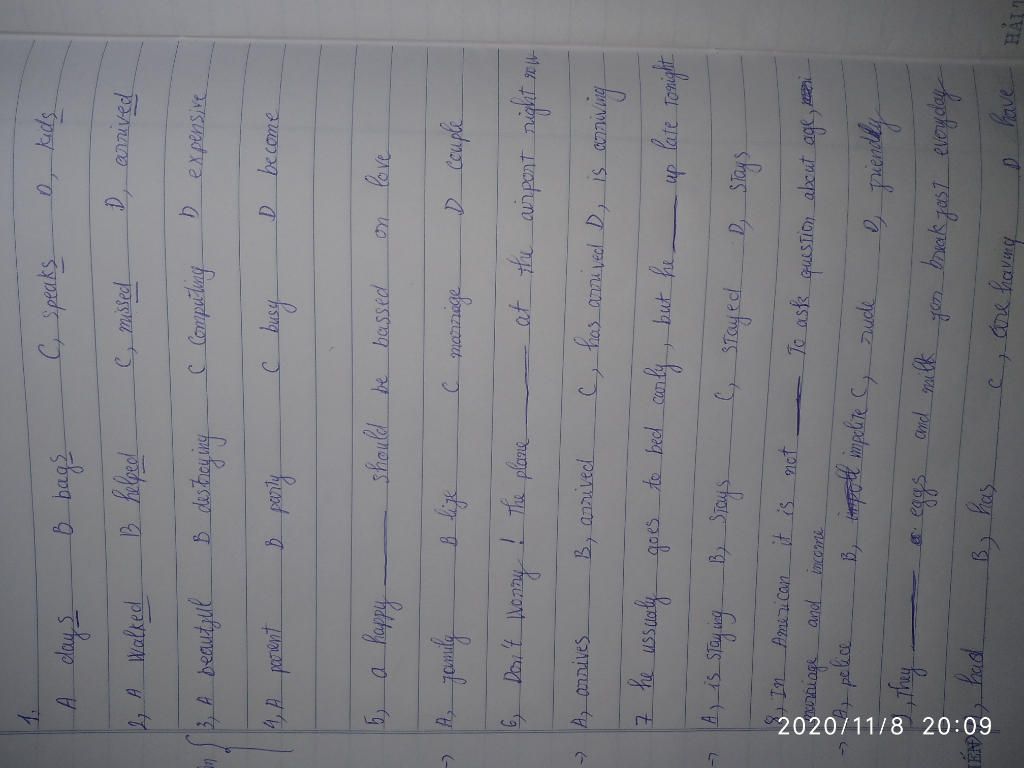 1,
A days B bags C, speaks D, kids
2, A Walked B helped C, missed D, arrived
3, A beautyul B destroying C Competing D expensive
4, A parent B party C busy D become
5, a happy ______ should be bassed on love
A, family B life C marriage D couple
6, Don't Worry! the plane ______ at the airport right now
A, arrives B, arrived C, has arrived D, is arriving
7 he ussualy goes to bed early, but he ______ up late tonight
A, is staying B, Stays C, stayed D, stays
8, In American it is not ______ To ask question about age,
marriage and income
A, police B, impolite C, rude D, friendly
, they ______ eggs and milk for breakfast everyday
, had B, has C, are having D have
2020/11/8 20:09